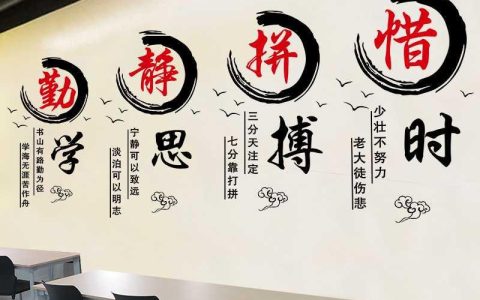 勤学
书山有路勤为径
学海无涯苦作舟
静思
宁静可以致远
淡泊可以明志
拼搏
三分天注定
七分靠打拼
惜时
少壮不努力
老大徒伤悲